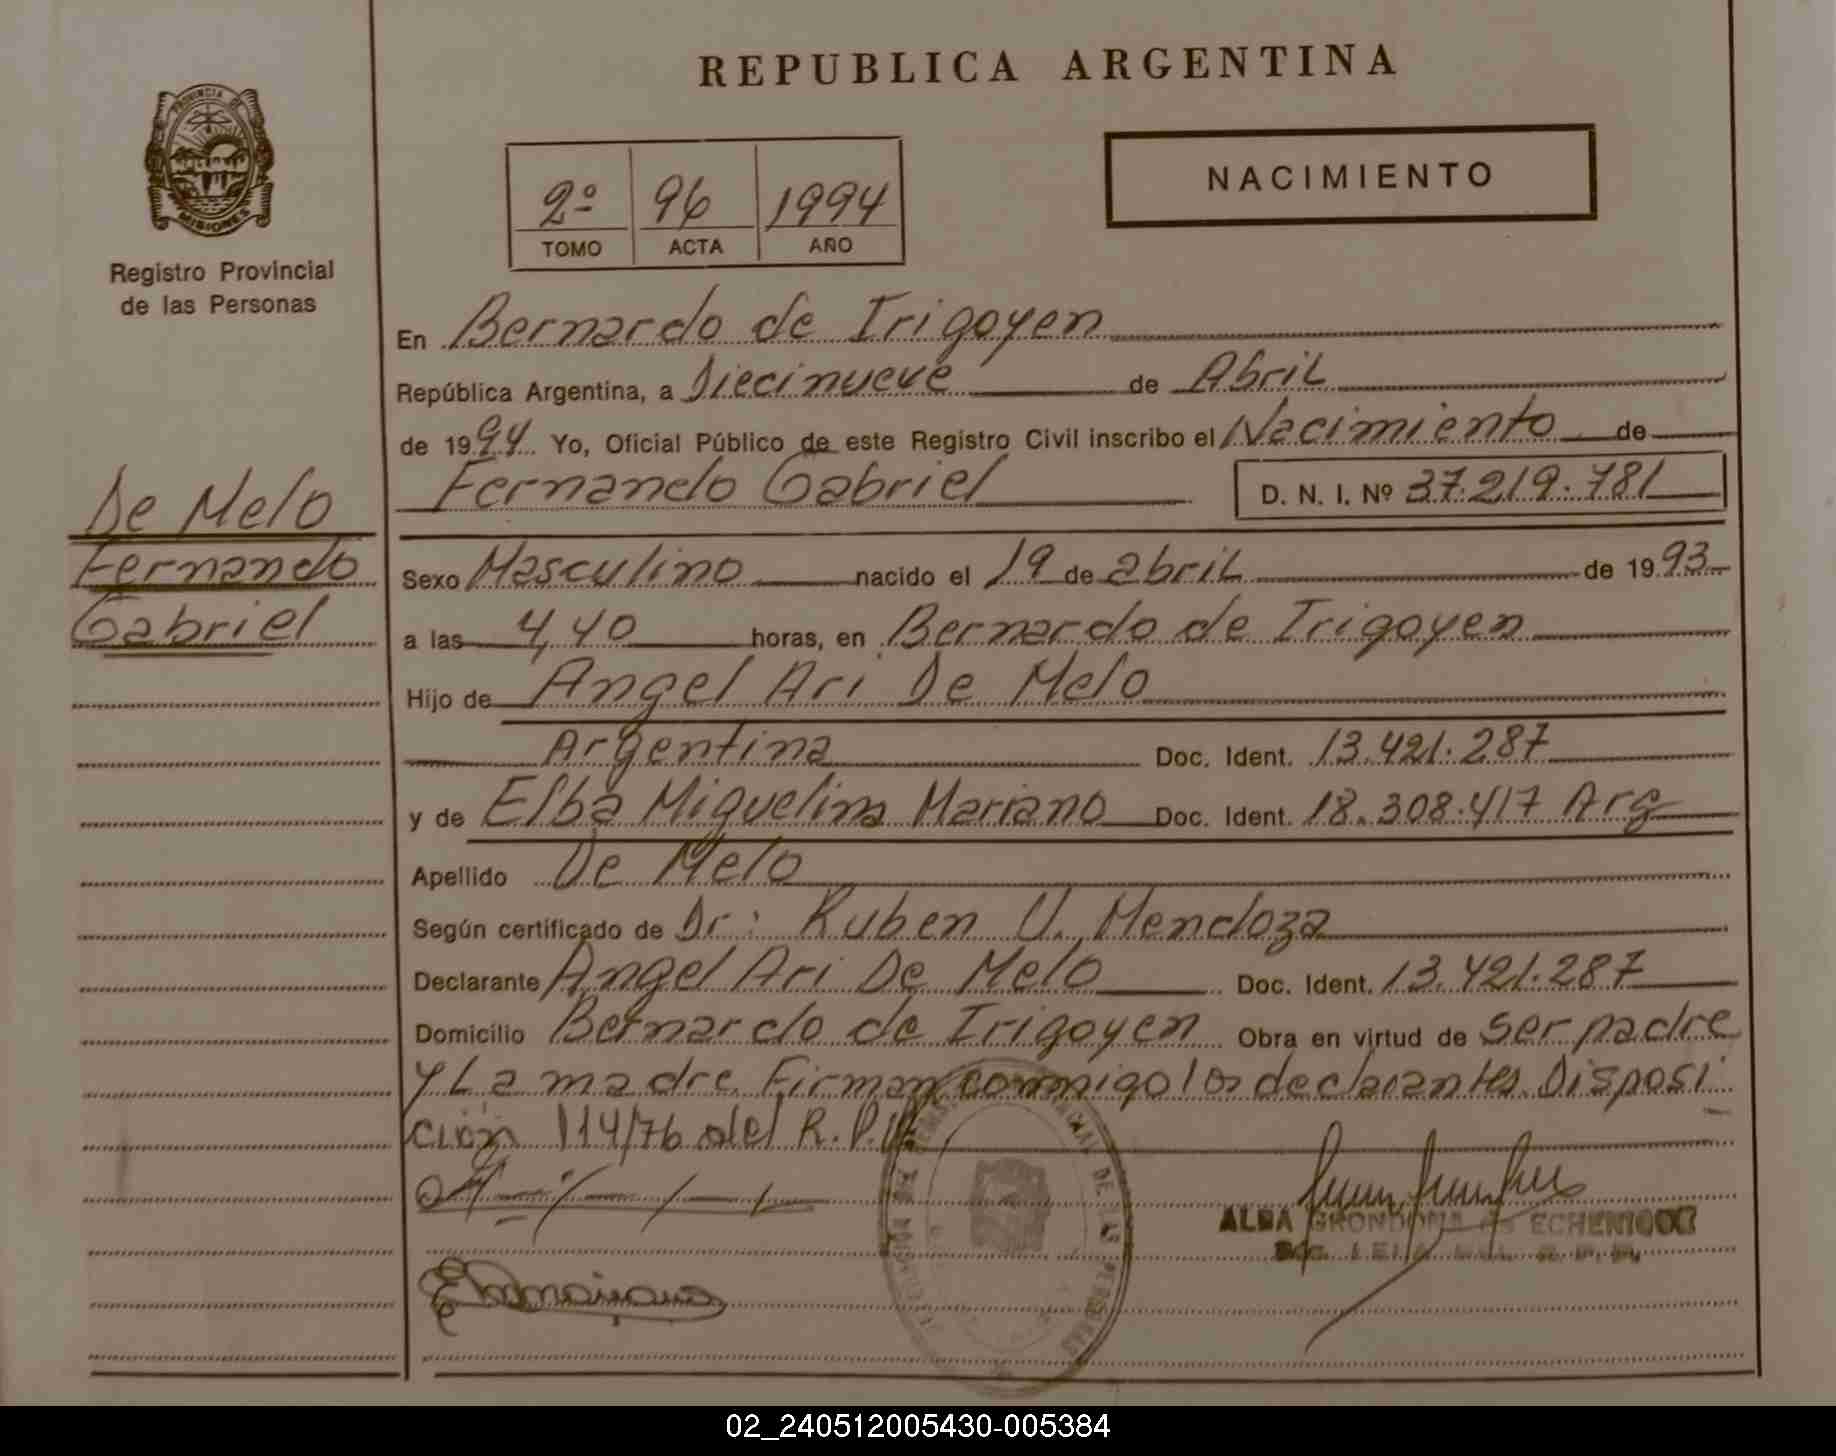 REPUBLICA ARGENTINA
PROVINCIA DE
MISIONES
Registro Provincial
de las Personas
2º 96 1994
TOMO ACTA AÑO
NACIMIENTO
En Bernardo de Irigoyen
República Argentina, a Diecinueve de Abril
de 1994 Yo, Oficial Público de este Registro Civil inscribo el Nacimiento de
Fernando Gabriel D. N. I. Nº 37.219.781
De Melo
Fernando
Gabriel
Sexo Masculino nacido el 19 de abril de 1993
a las 4,40 horas, en Bernardo de Irigoyen
Hijo de Angel Ari De Melo
Argentina Doc. Ident. 13.421.287
y de Elba Miguelina Mariano Doc. Ident. 18.308.417 Arg
Apellido De Melo
Según certificado de Dr: Ruben U. Mendoza
Declarante Angel Ari De Melo Doc. Ident. 13.421.287
Domicilio Bernardo de Irigoyen Obra en virtud de ser padre
y La madre. Firman conmigo los declarantes. Disposi
ción 114/76 del R. P.
ALBA GRONDONA de ECHENIQUE
02_240512005430-005384